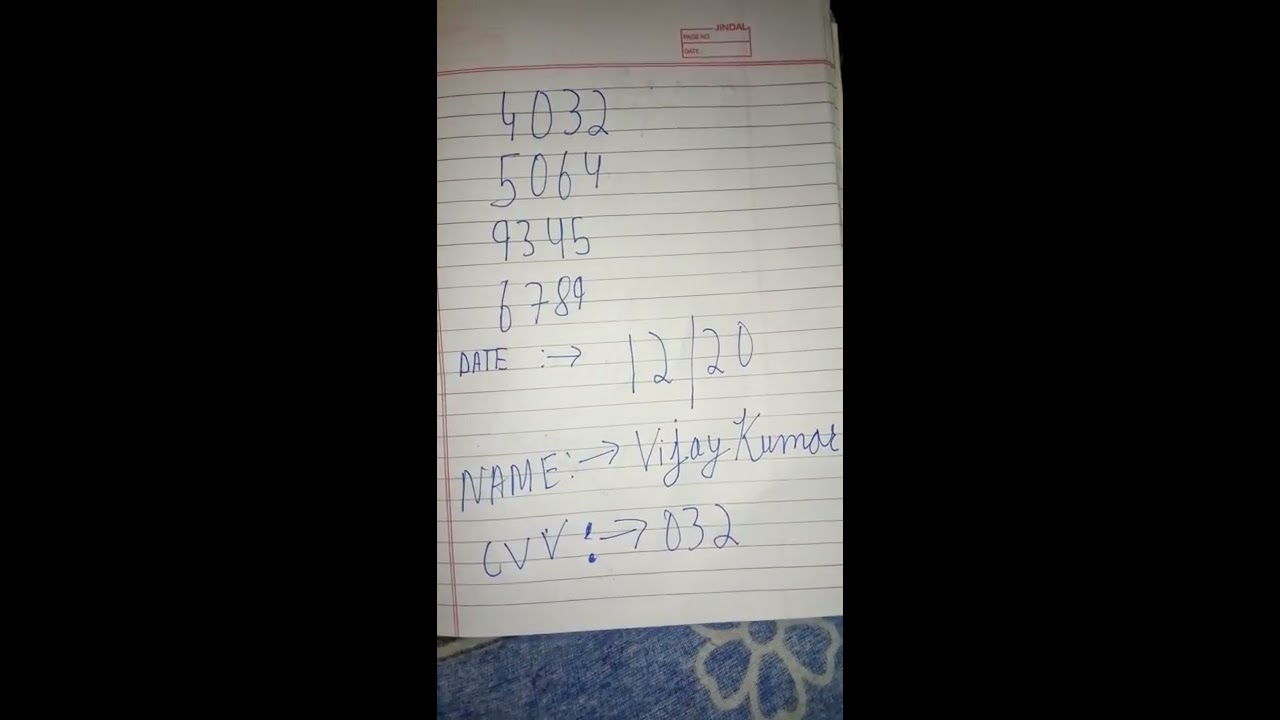 JINDAL
PAGE NO.
DATE:
4032
5064
9345
6789
DATE :→ 12/20
NAME:→ Vijay Kumar
CVV:→ 032